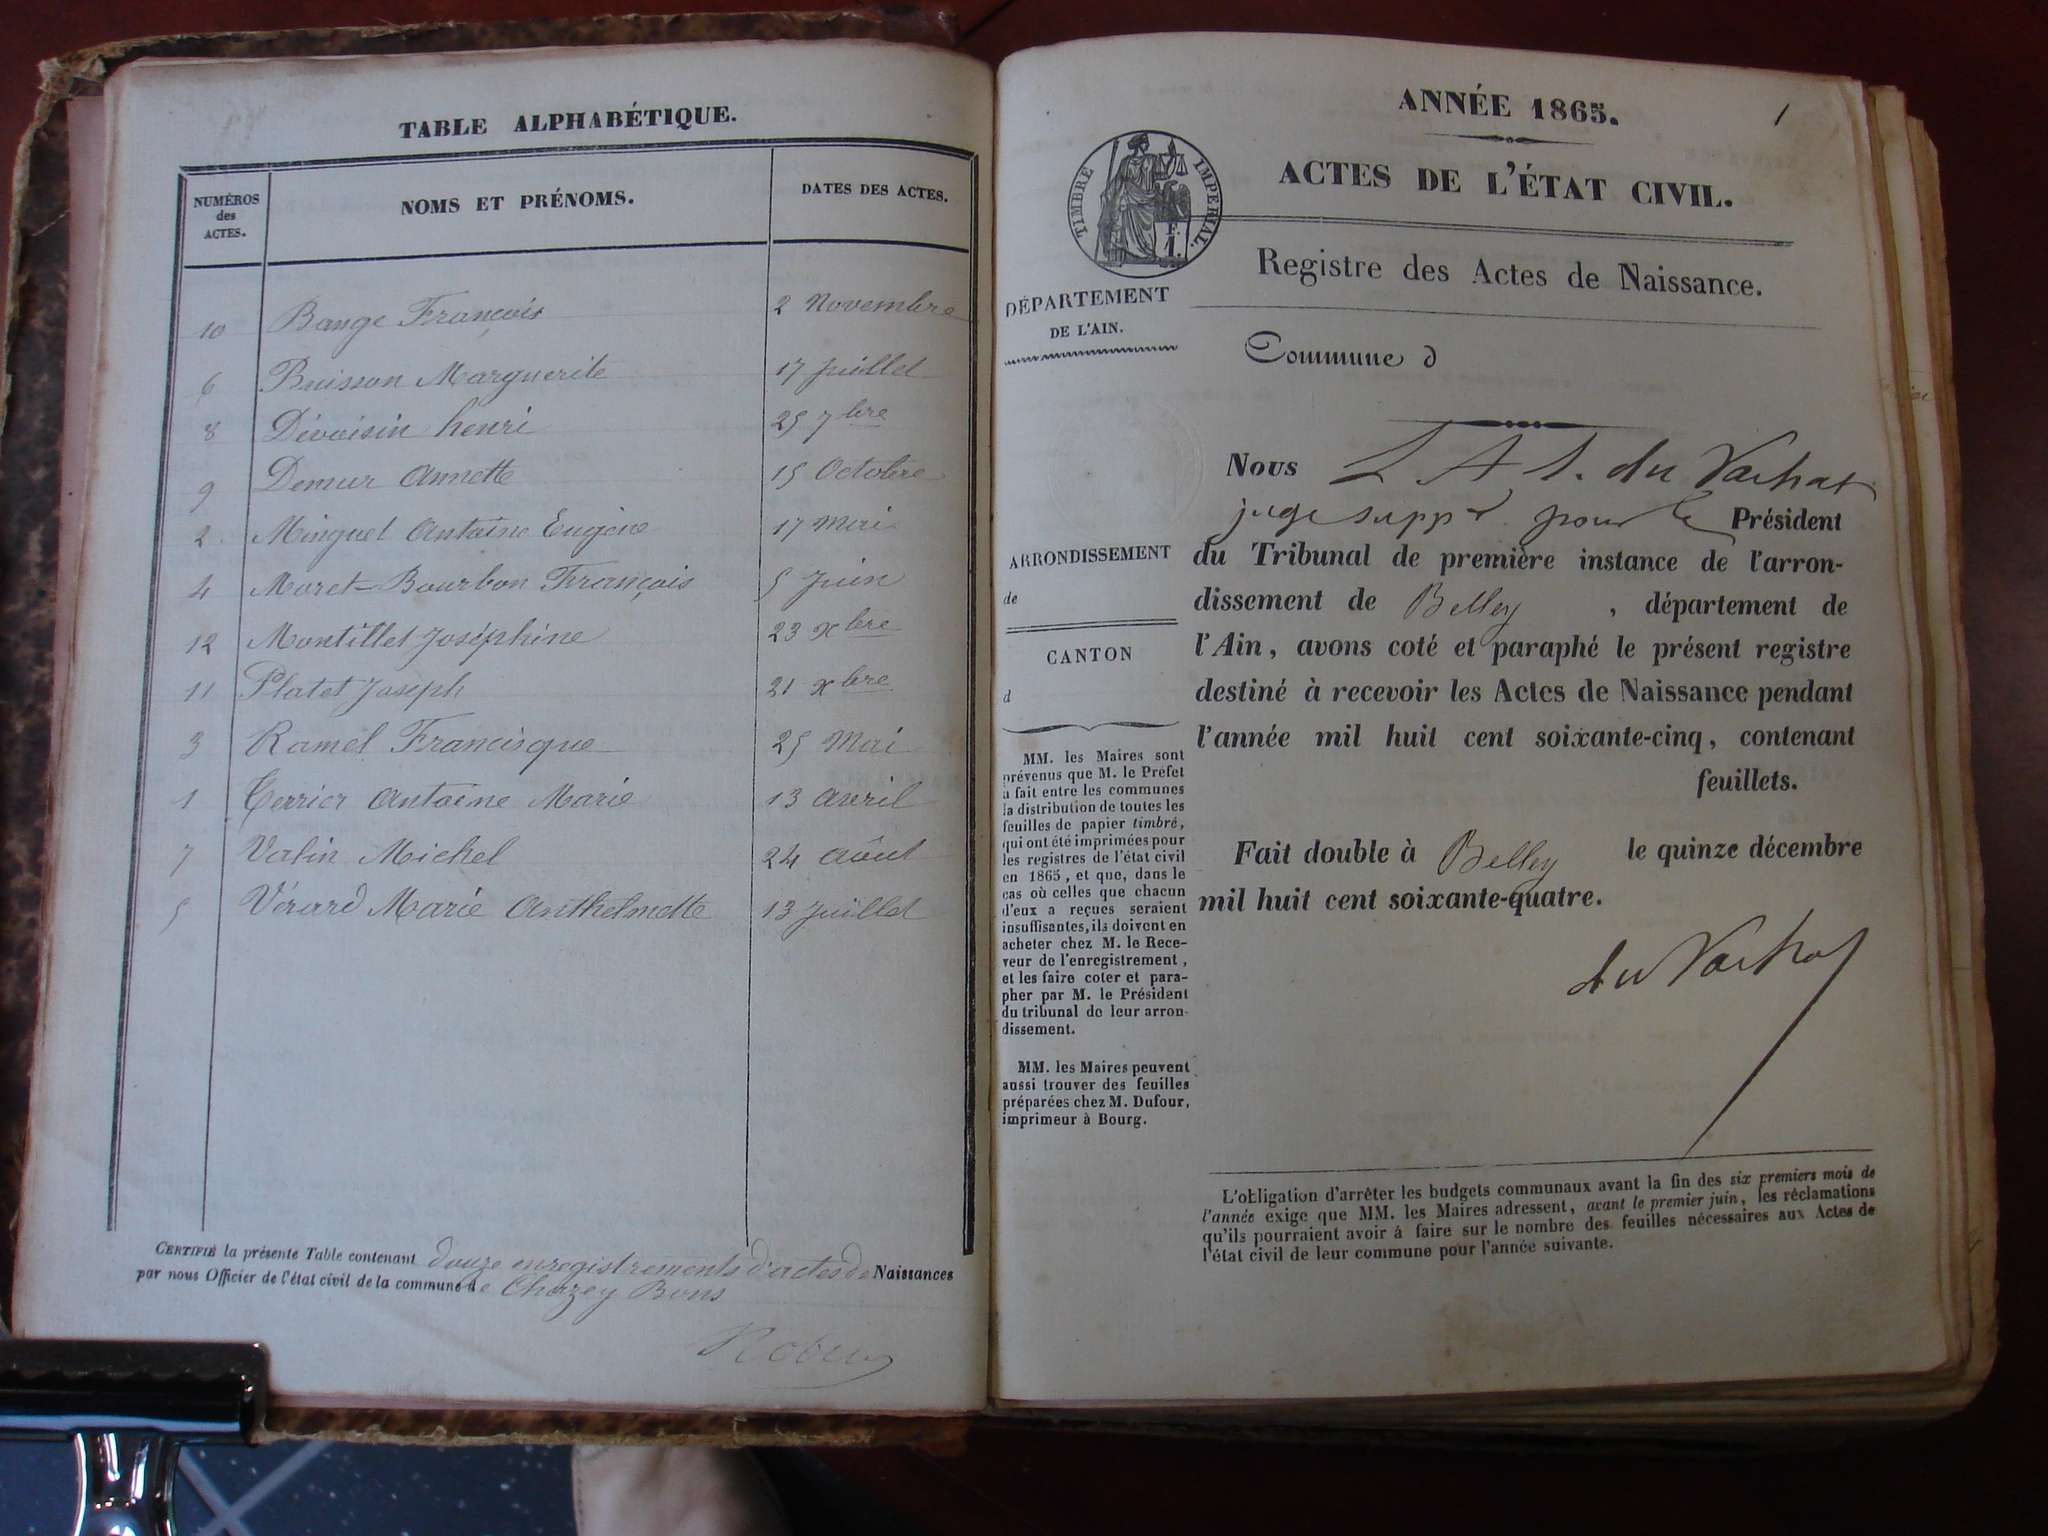 TABLE ALPHABÉTIQUE.
NUMÉROS des ACTES. NOMS ET PRÉNOMS. DATES DES ACTES.
10 Bange François 2 Novembre
6 Buisson Marguerite 17 Juillet
8 Dévoisin henri 25 7bre
9 Demur Annette 15 Octobre
2 Minguet Antoine Eugène 17 Mai
4 Moret-Bourbon François 5 Juin
12 Montillet Joséphine 23 xbre
11 Platet Joseph 21 xbre
3 Ramel Francisque 25 Mai
1 Terrier Antoine Marie 13 Avril
7 Valin Michel 24 Août
5 Vérard Marie Anthelmette 13 Juillet
CERTIFIÉ la présente Table contenant douze enregistrements d'actes de Naissances
par nous Officier de l'état civil de la commune de Chazey Bons
ANNÉE 1865.
1
ACTES DE L'ÉTAT CIVIL.
TIMBRE IMPERIAL.
F.
1.
Registre des Actes de Naissance.
DÉPARTEMENT
DE L'AIN.
Commune d
ARRONDISSEMENT
de
CANTON
d
MM. les Maires sont
prévenus que M. le Préfet
a fait entre les communes
la distribution de toutes les
feuilles de papier timbré,
qui ont été imprimées pour
les registres de l'état civil
en 1865, et que, dans le
cas où celles que chacun
d'eux a reçues seraient
insuffisantes, ils doivent en
acheter chez M. le Rece-
veur de l'enregistrement,
et les faire coter et para-
pher par M. le Président
du tribunal de leur arron-
dissement.
MM. les Maires peuvent
aussi trouver des feuilles
préparées chez M. Dufour,
imprimeur à Bourg.
Nous L A S. du Vachat
juge suppt. pour le Président
du Tribunal de première instance de l'arron-
dissement de Belley , département de
l'Ain, avons coté et paraphé le présent registre
destiné à recevoir les Actes de Naissance pendant
l'année mil huit cent soixante-cinq, contenant
feuillets.
Fait double à Belley le quinze décembre
mil huit cent soixante-quatre.
du Vachat
L'obligation d'arrêter les budgets communaux avant la fin des six premiers mois de
l'année exige que MM. les Maires adressent, avant le premier juin, les réclamations
qu'ils pourraient avoir à faire sur le nombre des feuilles nécessaires aux Actes de
l'état civil de leur commune pour l'année suivante.